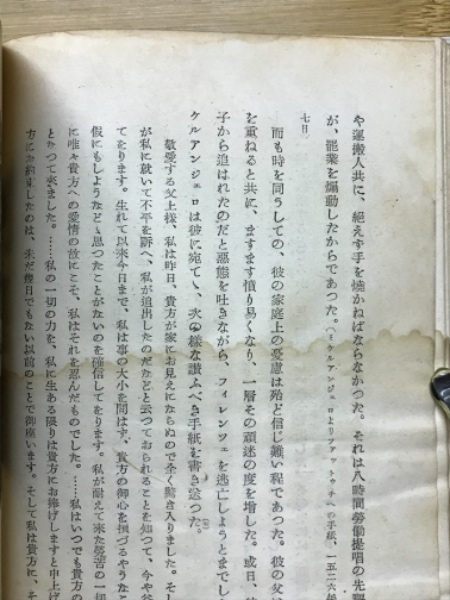 や運搬人共に、絶えず手を燒かねばならなかつた。それは八時間勞働提唱の先驅
が、罷業を煽動したからであつた。(ミケルアンジェロよりファットゥチへの手紙、一五二六年
七日
而も時を同うしての、彼の家庭上の憂慮は殆ど信じ難い程であつた。彼の父は
を重ねると共に、ますます憤り易くなり、一層その頑迷の度を増した。或日、彼
子から追はれたのだと惡態を吐きながら、フィレンツェを逃亡しようとまでし
ケルアンジェロは彼に宛てゝ、次の樣な讃ふべき手紙を書き送つた。
敬愛する父上樣、私は昨日、貴方が家にお見えにならぬので全く驚き入りました。そし
が私に就いて不平を訴へ、私が追出したのだなどと云つておられることを知つて、今や
てをります。生れて以來今日まで、私は事の大小を問はず、貴方の御心を損づるやうなこ
假にもしようなどゝ思つたことがないのを確信してをります。私が耐えて來た勞苦の一切
に唯々貴方への愛情の故にこそ、私はそれを忍んだものでした。……私はいつでも貴方の
とかつて來ました。……私の一切の力を、私に生ある限りは貴方にお捧げしますと申上げ
方にお約束したのは、未だ幾日でもない以前のことで御座います。そして私は貴方に、そ